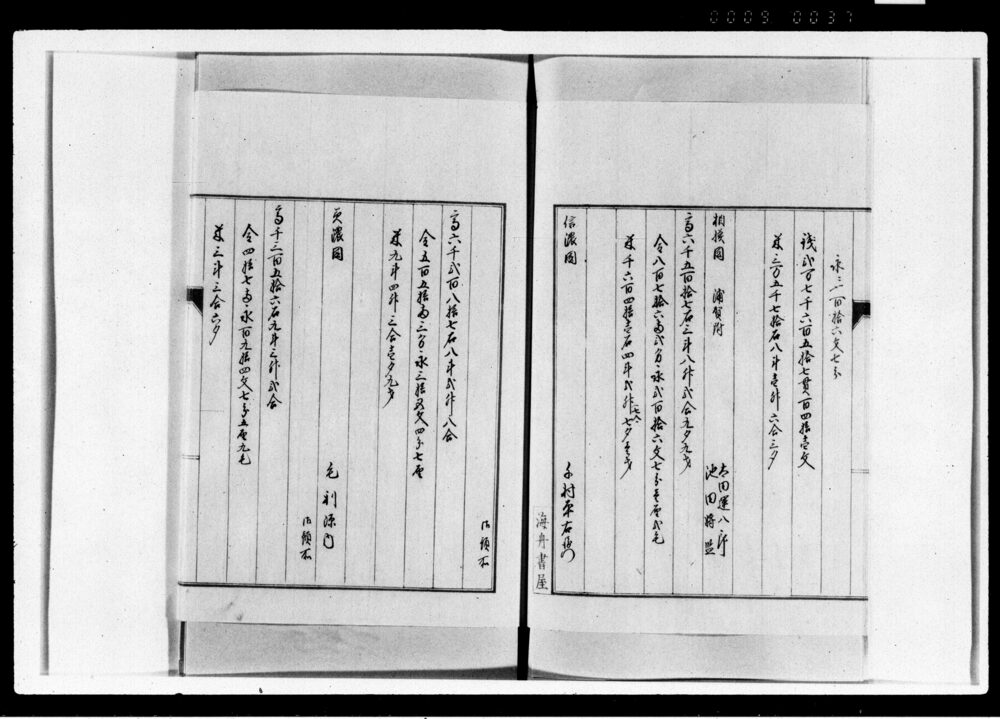 0009 0037
永三百拾六文七分
銭弐万七千六百五拾七貫百四拾壱文
米三万五千七拾石八斗壱升六合三夕
相模国 浦賀附
太田運八郎
池田将監
高六千五百拾七石三斗八升弐合九夕九才
金八百七拾六両弐分永弐百拾六文七分壱厘弐毛
米千六百四拾壱石四斗弐升七夕壱才
信濃国 千村平右衛門
海舟書屋
御預所
高六千弐百八拾七石八斗弐升八合
金五百五拾両三分永三拾五文四分七厘
米九斗四升三合壱夕九才
美濃国 毛利源内
御預所
高千三百五拾六石九斗三升弐合
金四拾七両永百九拾四文七分五厘九毛
米三斗三合六夕